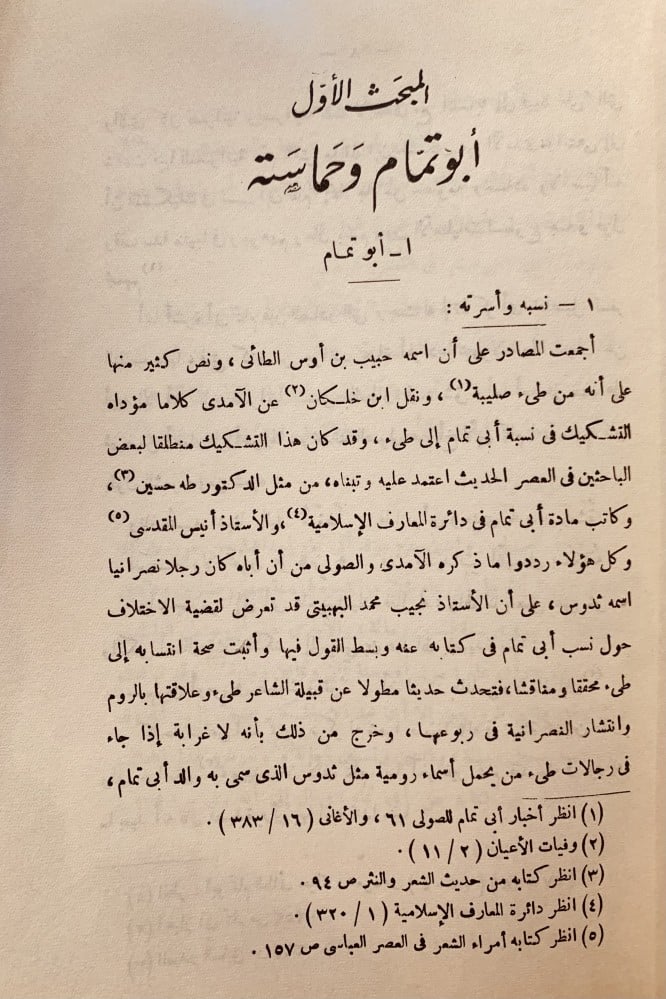 المبحث الأول
أبو تمام وحماسته
ا ـ أبو تمام
١ – نسبه وأسرته :
أجمعت المصادر على أن اسمه حبيب بن أوس الطائى ، ونص كثير منها
على أنه من طىء صليبة(١) ، ونقل ابن خلكان(٢) عن الآمدى كلاما مؤداه
التشكيك فى نسبة أبى تمام إلى طىء ، وقد كان هذا التشكيك منطلقا لبعض
الباحثين فى العصر الحديث اعتمد عليه وتبناه، من مثل الدكتور طه حسين(٣) ،
وكاتب مادة أبى تمام فى دائرة المعارف الإسلامية(٤)، والأستاذ أنيس المقدسى(٥)
وكل هؤلاء رددوا ما ذكره الآمدى والصولى من أن أباه كان رجلا نصرانيا
اسمه ثدوس ، على أن الأستاذ نجيب محمد البهبيتى قد تعرض لقضية الاختلاف
حول نسب أبى تمام فى كتابه عنه وبسط القول فيها وأثبت صحة انتسابه إلى
طىء محققا ومناقشا، فتحدث حديثا مطولا عن قبيلة الشاعر طىء وعلاقتها بالروم
وانتشار النصرانية فى ربوعها ، وخرج من ذلك بأنه لا غرابة إذا جاء
فى رجالات طىء من يحمل أسماء رومية مثل ثدوس الذى سمى به والد أبى تمام ،
(١) انظر أخبار أبى تمام للصولى ٦١ ، والأغانى ( ١٦ / ٣٨٣ ) .
(٢) وفيات الأعيان ( ٢ / ١١ ) .
(٣) انظر كتابه من حديث الشعر والنثر ص ٩٤ .
(٤) انظر دائرة المعارف الإسلامية ( ١ / ٣٢٠ ) .
(٥) انظر كتابه أمراء الشعر فى العصر العباسى ص ١٥٧ .